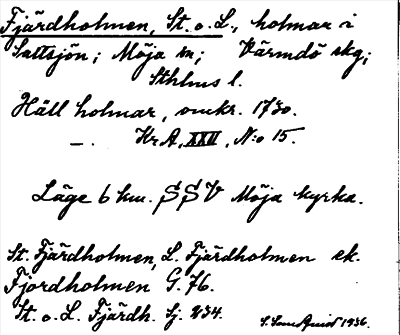 Fjärdholmen, St. o. L., holmar i
Saltsjön; Möja sn; Värmdö skg;
Sthlms l.
Häll holmar, omkr. 1730.
—. Kr A, XXII, N:o 15.
Läge 6 km. SSV Möja kyrka.
St. Fjärdholmen, L. Fjärdholmen ek.
Fjordholmen G. 76.
St. o. L. Fjärdh. Sj. 834.
1936.